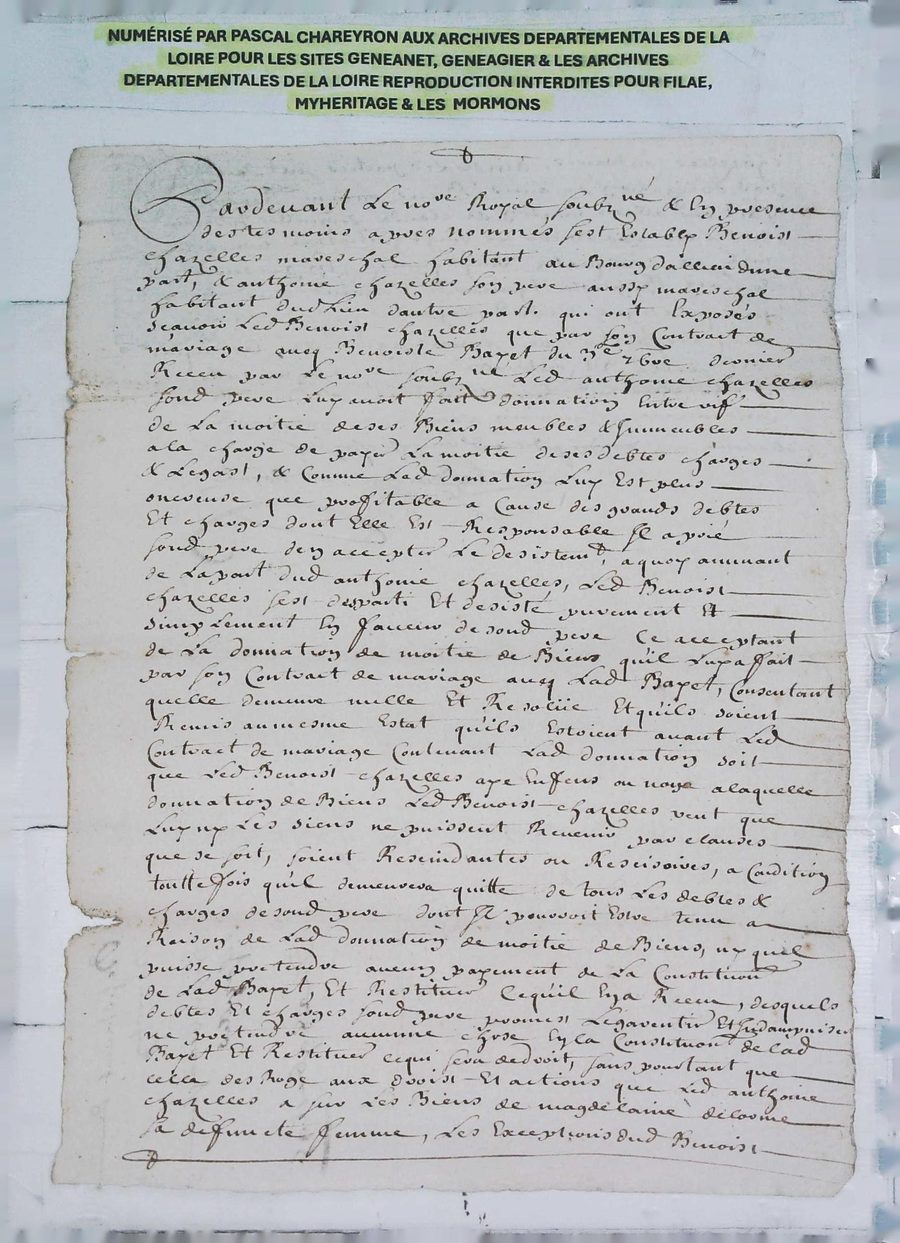 NUMÉRISÉ PAR PASCAL CHAREYRON AUX ARCHIVES DEPARTEMENTALES DE LA
LOIRE POUR LES SITES GENEANET, GENEAGIER & LES ARCHIVES
DEPARTEMENTALES DE LA LOIRE REPRODUCTION INTERDITES POUR FILAE,
MYHERITAGE & LES MORMONS
Pardevant Le nore Royal soubzné & En presence
destesmoins apres nommés sest Estably Benoist
chazelles mareschal habitant au Bourg dallieu dune
part, & anthoine chazelles son pere aussy mareschal
habitant dud Lieu dautre part. qui ont Exposés
scauoir Led Benoist chazelles que par son Contract de
mariage aueq Benoiste Bayet du 7bre dernier
Receu par Le nore soubzné Led anthoine chazelles
sond pere Luy auoit fait donnation Entre vif
de La moitié deses Biens meubles & Immeubles
ala charge de payer La moitié desesdebtes charges
& Legast, & Comme Lad donnation Luy Est plus
onereuse que proffitable a Cause des grands debtes
Et charges dont Elle Est Responsable Il a prié
sond pere den accepter Le desistemt, aquoy annuant
de Lapart dud anthoine chazelles, Led Benoist
chazelles sest desparti Et desisté purement Et
simplement En faueur desond pere Ce acceptant
de La donnation de moitié de Biens qu'il Luy a fait
par son Contract de mariage aueq Lad Bayet, Consentant
quelle demeure nulle Et Resoliie Etquils soient
Remis aumesme Estat qu'ils Estoient auant Led
Contract de mariage Contenant Lad donnation soit
que Led Benoist chazelles aye Enfens ou non alaquelle
donnation de Biens Led Benoist chazelles veut que
Luy ny Les siens ne puissent Reuenir par clauses
que se soit, soient Rescindantes ou Rescisoires, a Condition
touttefois qu'il demeurera quitte de tous Les debtes &
charges desond pere dont Il pourroit Estre tenu a
Raison de Lad donnation de moitié de Biens, ny quel
puisse pretendre aucun payement de La Constitution
de Lad Bayet, Et Restituer Cequil En a Receu, desquels
debtes Et charges sond pere promet Legarentir Et Indampniser
ne pretendre aucunne chose En La Constitution de Lad
Bayet Et Restituer cequi sera dedroit, sans pourtant que
cella desroge aux droist Et actions que Led anthoine
chazelles a sur Les Biens de magdelaine delorme
sa defuncte femme, Les Exceptions dud Benoist